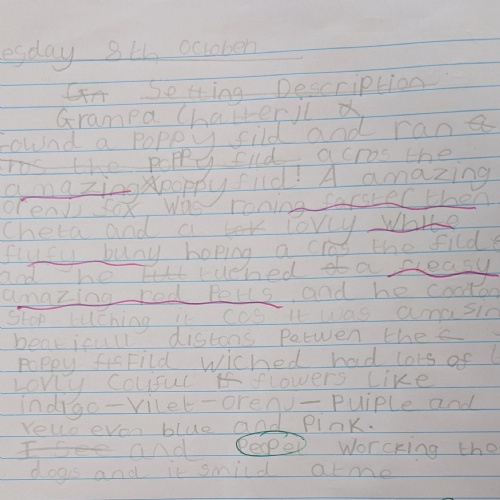 esday 8th October
Setting Description
Grampa Chatterji
fownd a poppy fild and ran a
cros the poppy fild acros the
amazing poppy fild! A amazing
orenj fox was runing faster then
cheta and a lovly white
flufy buny hoping a cros the fild
and he tuched a
amazing red petls and he
stop tuching it cos it was amasin
beatifull distons petwen the
poppy Fild wiched had lots of
Lovly coliful flowers like
indigo-vilet-orenj-pulple and
yello even blue and pink.
I see and peopel worcking the
dogs and it smild at me